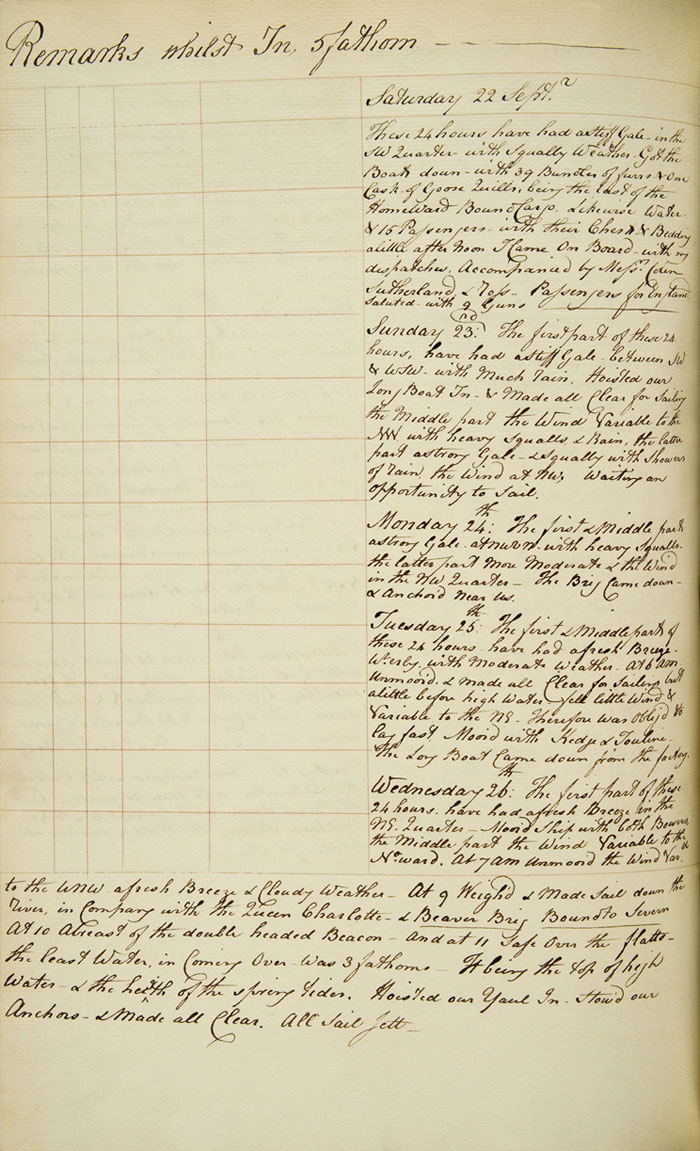 Remarks whilst In, 5 fathom
Saturday 22 Sept.r
These 24 hours have had a stiff Gale in the
SW Quarter with Squally Weather Got the
Boat down with 39 Bundles of furrs & One
Cask of Goose Quills, being the last of the
Homeward Bound Cargo. Likewise Water
& 15 Passengers with their Chests & Bedding
a little after Noon I Came On Board with my
dispatches, Accompanied by Mess.rs
Sutherland, & Ross Passengers for England
Saluted with 9 Guns
Sunday 23.d The first part of these 24
hours, have had a stiff Gale between SW
& WSW with Much rain. Hoisted our
Long Boat In & Made all Clear for Sailing
the Middle part the Wind Variable to the
NW with heavy Squalls & Rain, the latter
part a strong Gale & Squally with Showers
of rain the Wind at NW, Waiting an
opportunity to Sail.
Monday 24.th The first & Middle part
a strong Gale at with heavy Squalls
the latter part More Moderate & the Wind
in the NW Quarter The Brig Came down
& Anchor'd Near Us.
Tuesday 25.th The first & Middle part of
these 24 hours have had a fresh Breeze
W'erly with Moderate Weather. At 6 am
Unmoor'd & made all Clear for Sailing but
a little before high Water fell little Wind &
Variable to the NE. Therefore was Oblig'd to
lay fast Moor'd with Kedge & Towline
The Long Boat Came down from the factory
Wednesday 26.th The first part of these
24 hours have had a fresh Breeze in the
NE. Quarter Moor'd Ship with both Bowers
the Middle part the Wind Variable to the
No.ward. At 7 am Unmoor'd the Wind Var.
to the WNW a fresh Breeze & Cloudy Weather At 9 Weigh'd & Made Sail down the
River, in Company with the Queen Charlotte & Beaver Brig Bound to Severn
At 10 Abreast of the double headed Beacon And at 11 Safe Over the flatts
the least Water, in Coming Over Was 3 fathoms It being the top of high
Water & the heith of the spring tides. Hoisted our Yaul In Stow'd our
Anchors & Made all Clear. All Sail Sett